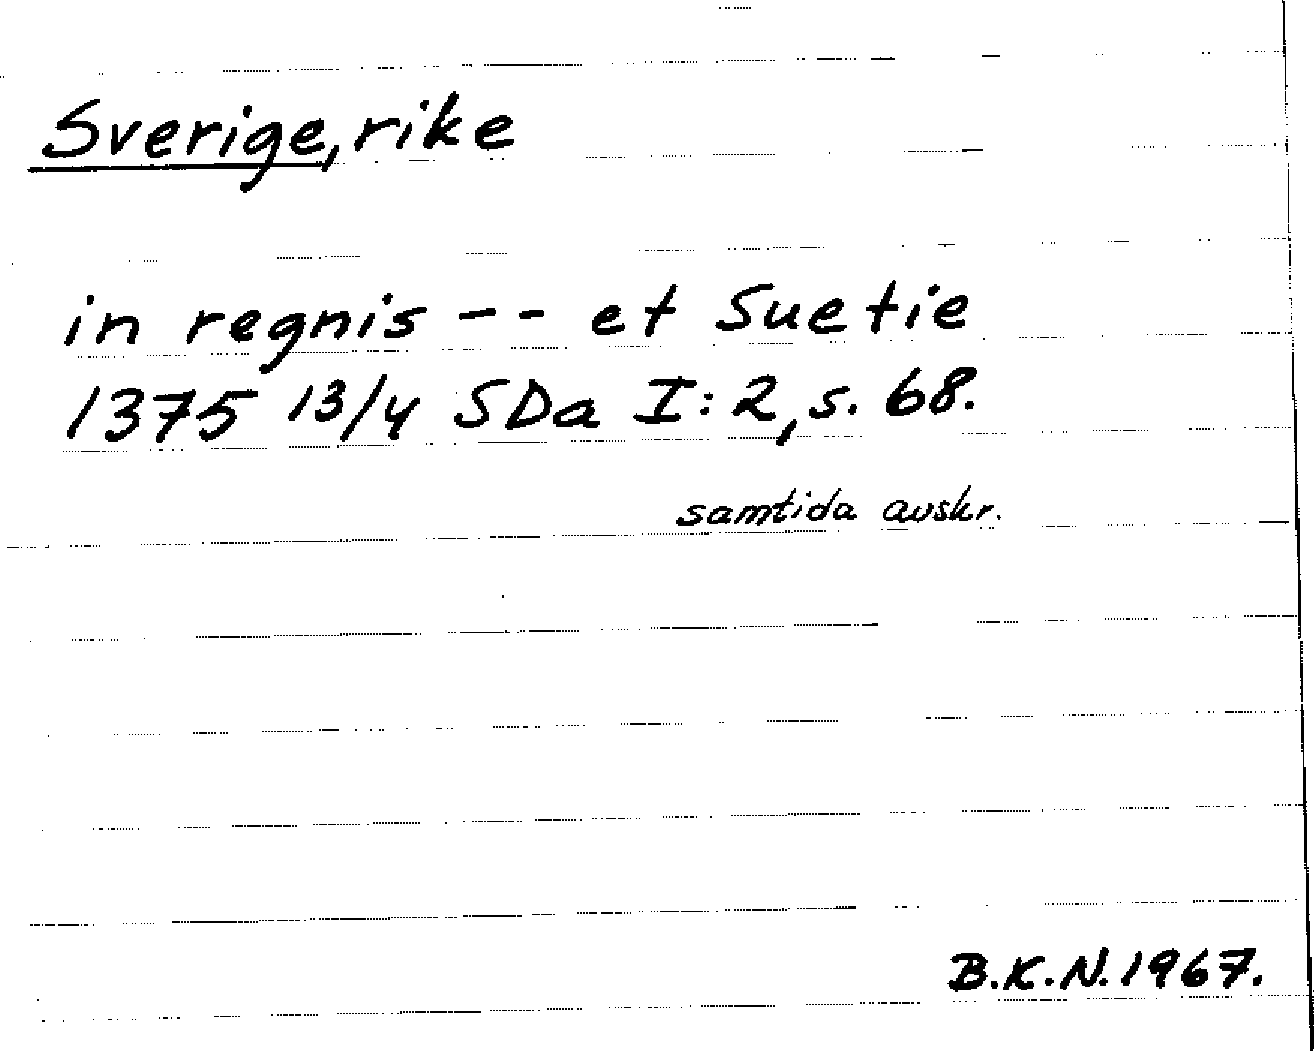 Sverige, rike
in regnis -- et Suetie
1375 13/4 SDa I:2, s. 68.
samtida avskr.
B.K.N. 1967.